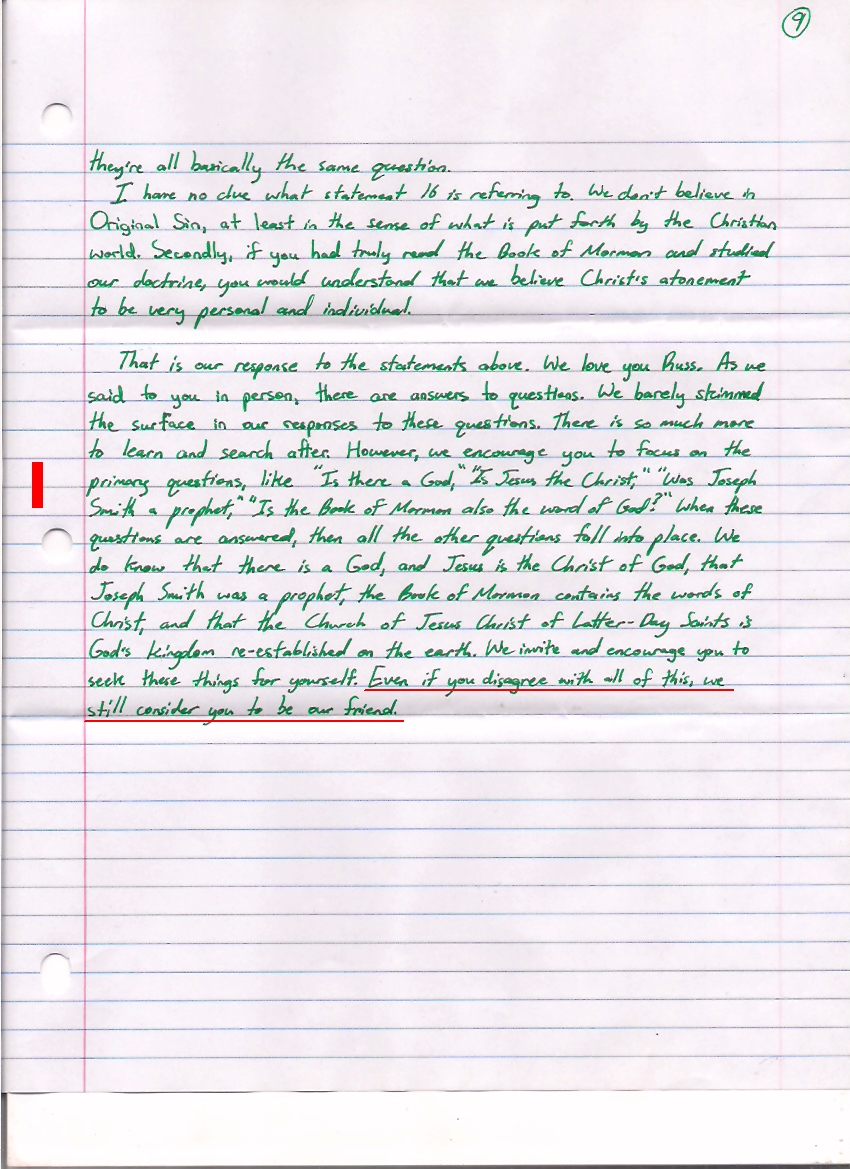 9
they're all basically the same question.
I have no clue what statement 16 is referring to. We don't believe in
Original Sin, at least in the sense of what is put forth by the Christian
world. Secondly, if you had truly read the Book of Mormon and studied
our doctrine, you would understand that we believe Christ's atonement
to be very personal and individual.
That is our response to the statements above. We love you Russ. As we
said to you in person, there are answers to questions. We barely skimmed
the surface in our responses to these questions. There is so much more
to learn and search after. However, we encourage you to focus on the
primary questions, like "Is there a God," "Is Jesus the Christ," "Was Joseph
Smith a prophet," "Is the Book of Mormon also the word of God?" When these
questions are answered, then all the other questions fall into place. We
do know that there is a God, and Jesus is the Christ of God, that
Joseph Smith was a prophet, the Book of Mormon contains the words of
Christ, and that the Church of Jesus Christ of Latter-Day Saints is
God's kingdom re-established on the earth. We invite and encourage you to
seek these things for yourself. Even if you disagree with all of this, we
still consider you to be our friend.